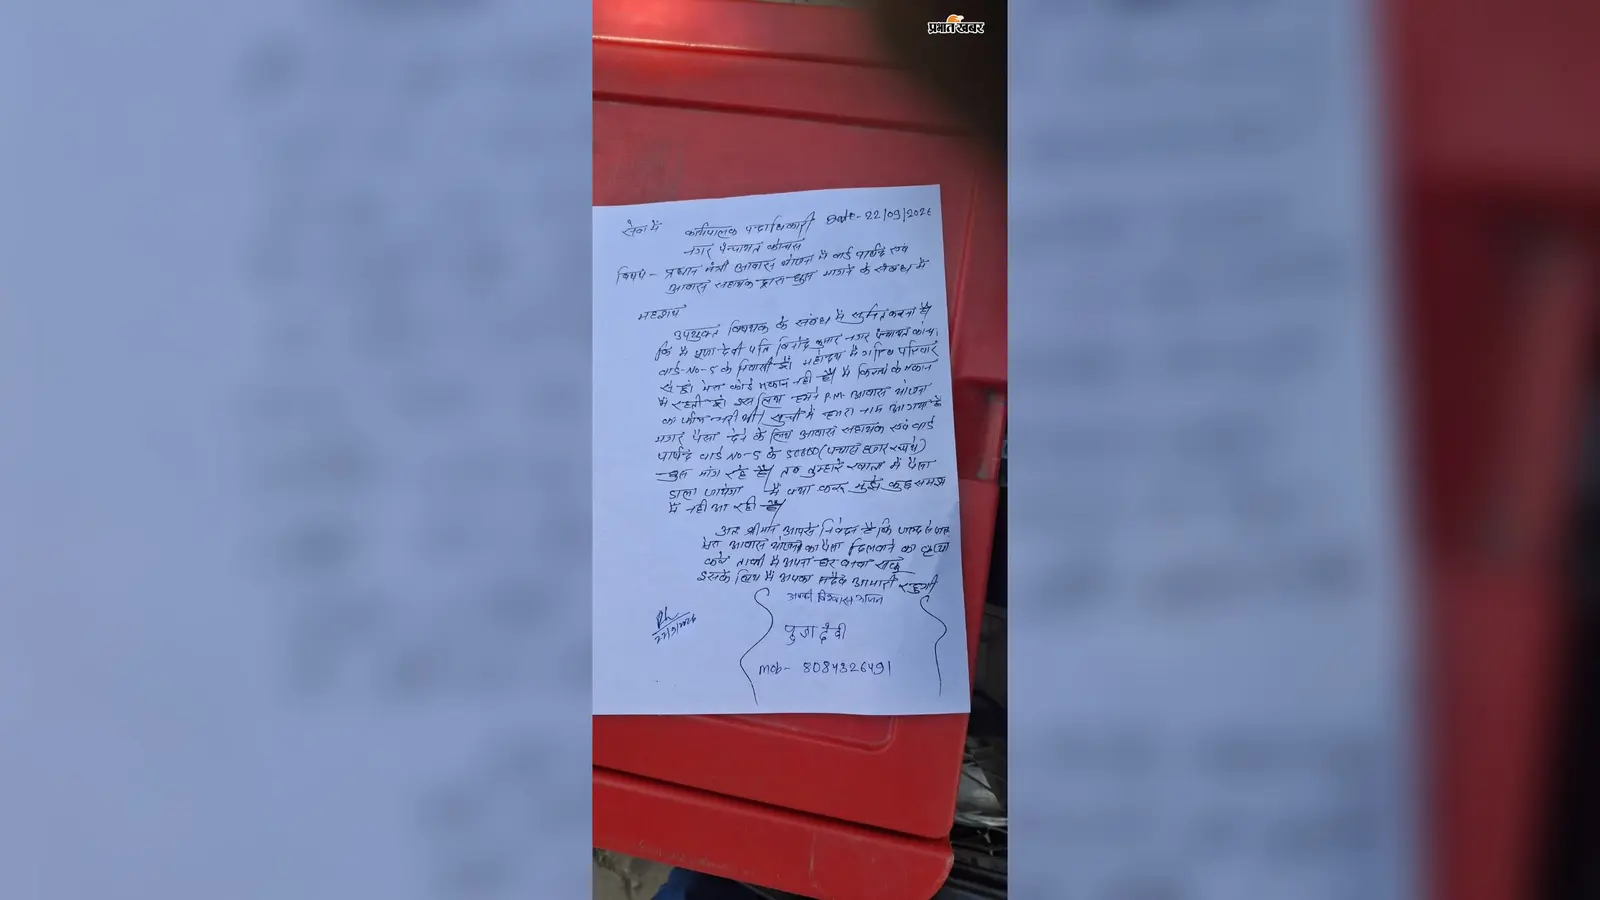 प्रभात खबर
सेवा में
कार्यपालक पदाधिकारी Date- 22/09/2026
नगर पंचायत कोचस
विषय - प्रधान मंत्री आवास योजना में वार्ड पार्षद एवं
आवास सहायक द्वारा घुस मांगने के संबंध में
महाशय
उपयुक्त विषयक के संबंध में सुचित करना है
कि मै पूजा देवी पति विनोद कुमार नगर पंचायत कोचस
वार्ड-No-5 के निवासी हूँ। महोदय मै गरिब परिवार
से हूँ। मेरा कोई मकान नही है। मै किराये के मकान
में रहती हूँ। इस लिए हमने P.M. आवास योजना
का फॉर्म भरी थी। सूची में हमारा नाम आ गया है
मगर पैसा देने के लिए आवास सहायक एवं वार्ड
पार्षद वार्ड No-5 के 50000 (पचास हजार रुपये)
घुस मांग रहे है। तब तुम्हारे खाता में पैसा
डाला जायेगा मै क्या करू मुझे कुछ समझ
में नही आ रही है।
अतः श्रीमान आपसे निवेदन है कि जल्द से जल्द
मेरा आवास योजना का पैसा दिलवाने का कृपा
करे ताकी मै अपना घर बनवा सकू
इसके लिए मै आपका सदैव आभारी रहुगी
आपका विश्वास भाजन
पुजा देवी
Mob- 8084326491